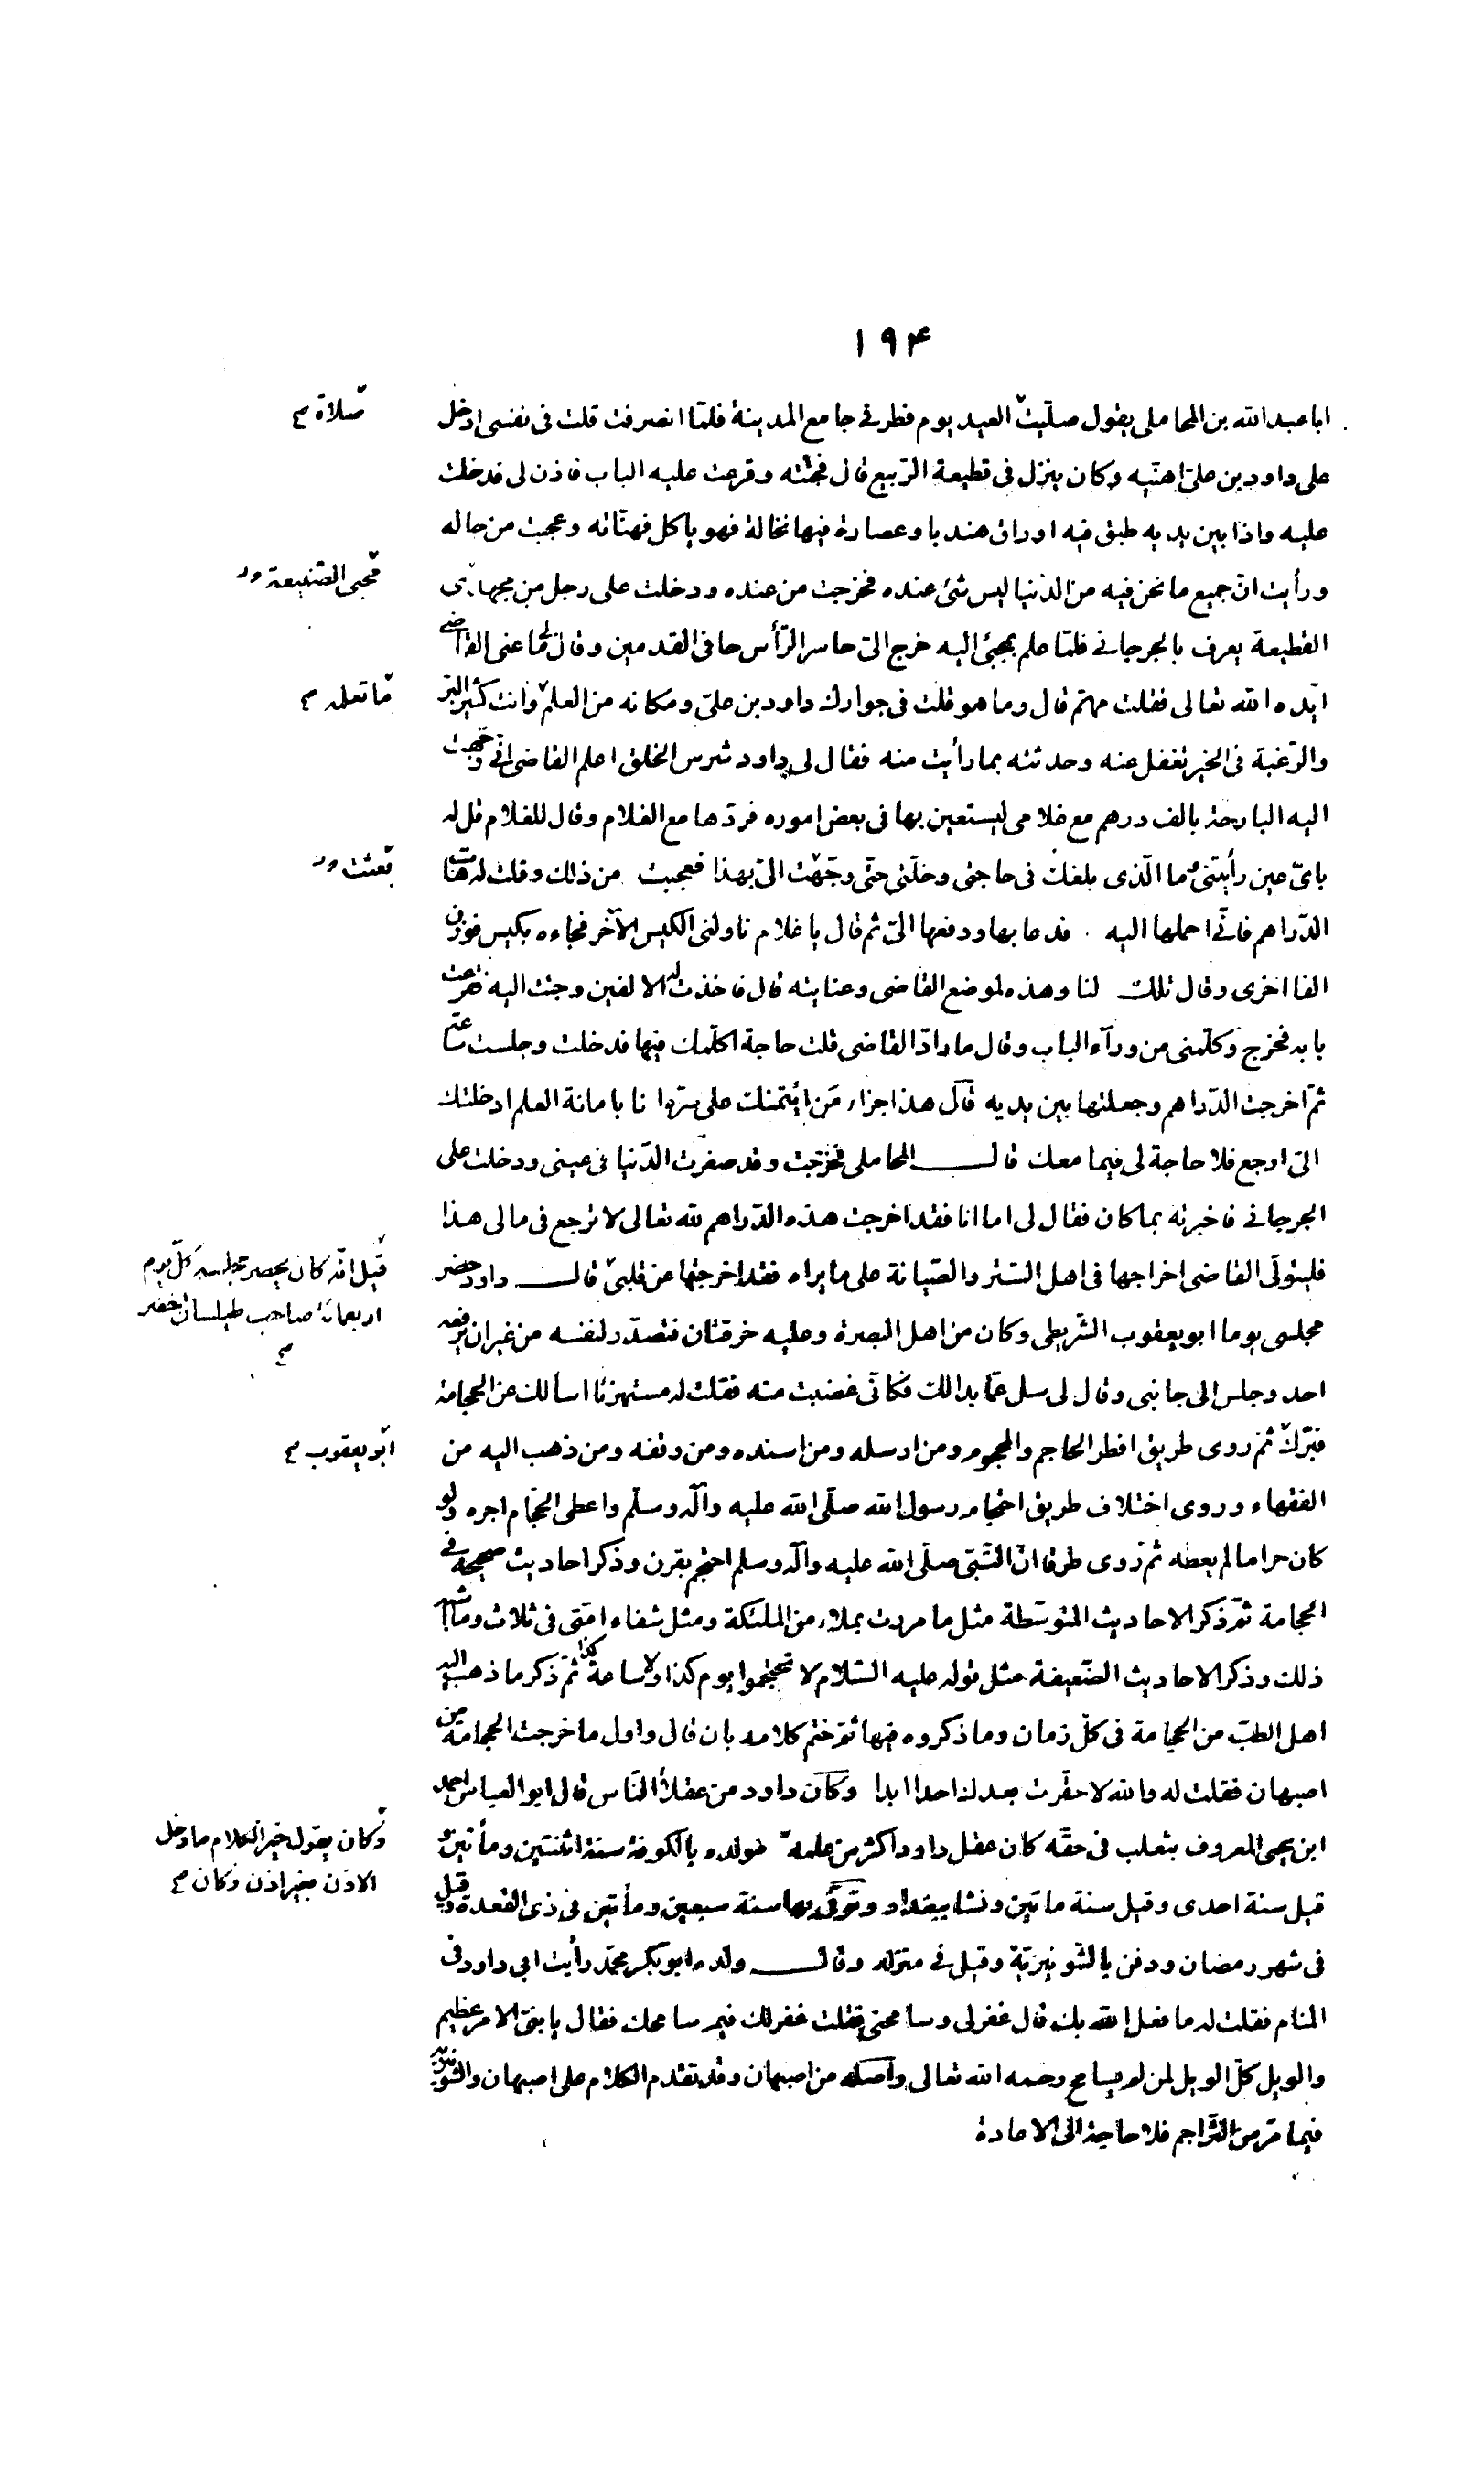 ١٩۴
ابا عبدالله بن المحاملى يقول صلّيت العيد يوم فطر فى جامع المدينة فلمّا انصرفت قلت فى نفسى ادخل
صلاة
على داود بن علىّ اهنّيه وكان ينزل فى قطيعة الرّبيع قال فجئته وقرعت عليه الباب فاذن لى فدخلت
عليه واذا بين يديه طبق فيه اوراق هندبا وعصارة فيها نخالة فهو ياكل فهنّاته وعجبت من حاله
ورأيت انّ جميع ما نحن فيه من الدّنيا ليس شئ عنده فخرجت من عنده ودخلت على رجل من
محبى الصّنيعة
القطيعة يعرف بالجرجانى فلمّا علم بمجيئ اليه خرج الىّ حاسر الرّأس حافى القدمين وقال لى ما عنى القاضى
ايّده الله تعالى فقلت مهمّ قال وما هو قلت فى جوارك داود بن علىّ ومكانه من العلم وانت كثير البرّ
ما تعلمه
والرّغبة فى الخير تغفل عنه وحدثته بما رأيت منه فقال لى داود شرس الخلق اعلم القاضى انّى وجّهت
اليه البارحة بالف درهم مع غلامى ليستعين بها فى بعض اموره فردّها مع الغلام وقال للغلام قل له
باىّ عين رأيتنى وما الّذى بلغك فى حاجتى وخلّتى حتّى وجّهت الىّ بهذا فعجبت من ذلك وقلت له هات
بعثت
الدّراهم فانّى احملها اليه فدعا بها ودفعها الىّ ثم قال يا غلام ناولنى الكيس الآخر فجاءه بكيس فوزن
الفا اخرى وقال تلك لنا وهذه لموضع القاضى وعنايته قال فاخذت له الالفين وجئت اليه فقرعت
بابه فخرج وكلّمنى من ورآء الباب وقال ما ردّ القاضى قلت حاجة اكلّمك فيها فدخلت وجلست ساعة
ثمّ اخرجت الدّراهم وجعلتها بين يديه قال هذا جزاء من ائتمنك على سرّه انا بامانة العلم ادخلتك
الىّ ارجع فلا حاجة لى فيما معك قال المحاملى فخرجت وقد صغرت الدّنيا فى عينى ودخلت على
الجرجانى فاخبرته بما كان فقال لى اما انا فقد اخرجت هذه الدّراهم لله تعالى لا ترجع فى مالى هذا
فليتولّى القاضى اخراجها فى اهل السّتر والصّيانة على ما يراه فقد اخرجتها عن قلبى قال داود حضر
قيل انّه كان يحضر مجلسه كلّ يوم
اربعمائة صاحب طيلسان اخضر
مجلسى يوما ابو يعقوب الشّريطى وكان من اهل البصرة وعليه خرقتان فتصدّر لنفسه من غير ان يرفعه
احد وجلس الى جانبى وقال لى سل عمّا بدالك فكانّى غضبت منه فقلت له مستهزئا اسألك عن الحجامة
فبرّك ثمّ روى طريق افطر الحاجم والمحجوم ومن ارسله ومن اسنده ومن وقفه ومن ذهب اليه من
ابو يعقوب
الفقهاء وروى اختلاف طريق احتجام رسول الله صلّى الله عليه وآله وسلّم واعطى الحجّام اجره ولو
كان حراما لم يعطه ثمّ روى طرق انّ النّبىّ صلّى الله عليه وآله وسلم احتجم بقرن وذكر احاديث صحيحة فى
الحجامة ثمّ ذكر الاحاديث المتوسّطة مثل ما مررت بملاء من الملئكة ومثل شفاء امّتى فى ثلاث وما اشبه
ذلك وذكر الاحاديث الضّعيفة مثل قوله عليه السّلام لا تحتجموا يوم كذا ولا ساعة كذا ثمّ ذكر ما ذهب اليه
اهل الطبّ من الحجامة فى كلّ زمان وما ذكروه فيها ثمّ ختم كلامه بان قال واول ما خرجت الحجامة من
اصبهان فقلت له والله لا حقّرت بعدك احدا ابدا وكان داود من عقلاء النّاس قال ابو العباس احمد
ابن يحيى المعروف بثعلب فى حقّه كان عقل داود اكثر من علمه مولده بالكوفة سنة اثنتين ومأتين و
وكان يقول خير الكلام ما دخل
الاذن بغير اذن وكان
قيل سنة احدى وقيل سنة ماتين ونشا ببغداد وتوفّى بها سنة سبعين ومأتين فى ذى القعدة وقيل
فى شهر رمضان ودفن بالشّونيزيّة وقيل فى منزله وقال ولده ابوبكر محمّد رأيت ابى داود فى
المنام فقلت له ما فعل الله بك قال غفر لى وسامحنى فقلت غفر لك فبم سامحك فقال يا بنىّ الامر عظيم
والويل كلّ الويل لمن لم يسامح رحمه الله تعالى واصله من اصبهان وقد تقدم الكلام على اصبهان والشّونيزيّه
فيما مرّ من التّراجم فلا حاجة الى الاعادة